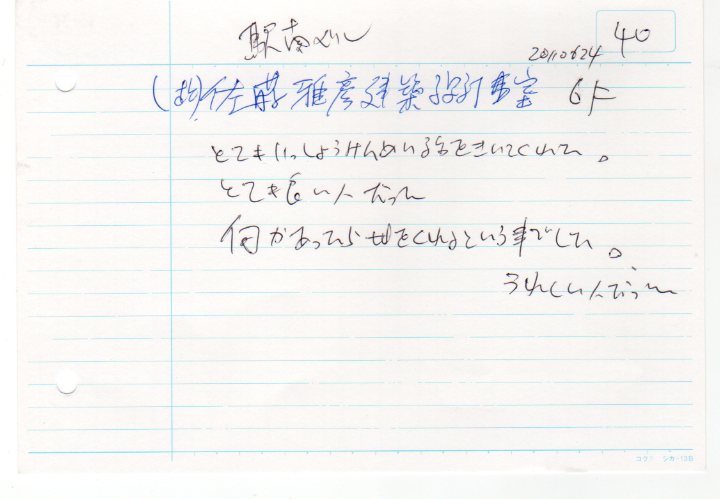 駅南ビル
20110624
40
(株)佐藤雅彦建築設計事室 6F
とてもいっしょうけんめい話をきいてくれて。
とても良い人だった
何かあったら せをくれるという事でした。
うれしい人だった
コクヨ シカ-13B